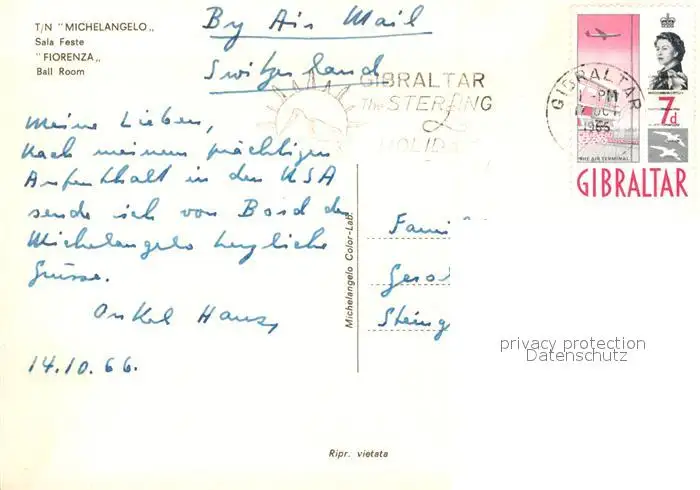 T/N "MICHELANGELO„
Sala Feste
"FIORENZA„
Ball Room
By Air Mail
Switzerland
GIBRALTAR
The STERLING
£
HOLIDAY
GIBRALTAR
-PM
17 OCT
1966
7d
THE AIR TERMINAL
GIBRALTAR
Meine Lieben,
Nach meinem prächtigen
Aufenthalt in den USA
sende ich von Bord der
Michelangelo herzliche
Grüsse.
Onkel Hans,
14.10.66.
Michelangelo Color-Lab.
Fami
Gesc
Steing
privacy protection
Datenschutz
Ripr. vietata